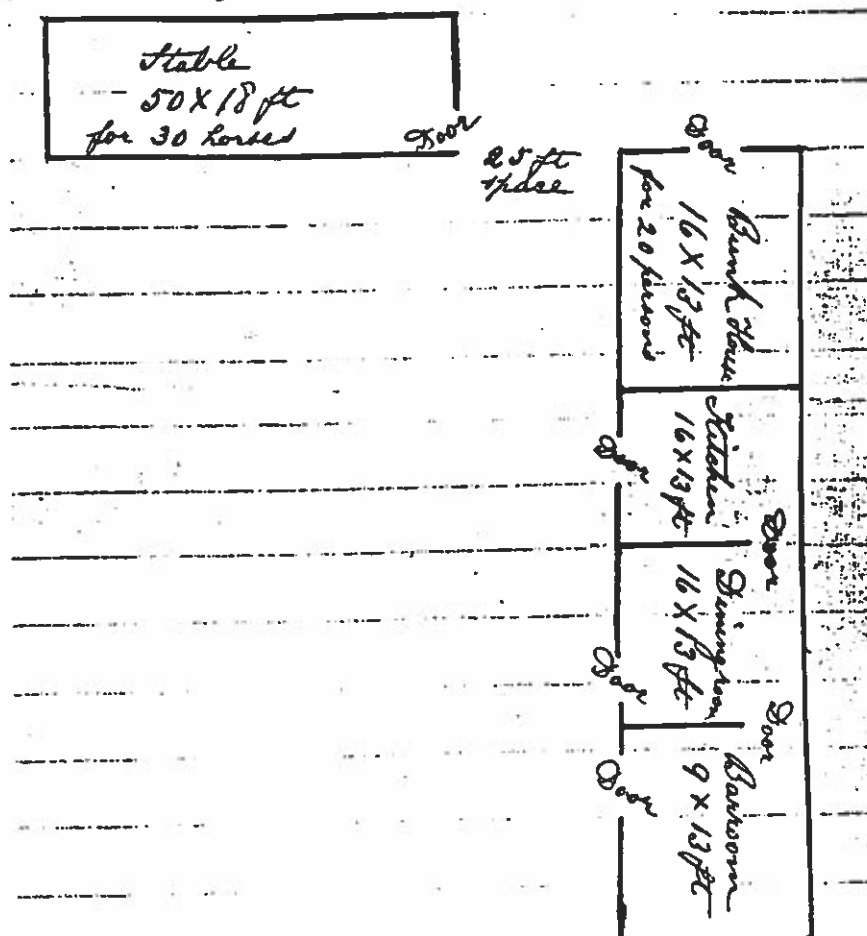 Stable
50 X 18 ft
for 30 horses
Door
25 ft
space
Door
Bunk House
16 X 13 ft
for 20 persons
Kitchen
16 X 13 ft
Door
Door
Dining room
16 X 13 ft
Door
Door
Barroom
9 X 13 ft
Door